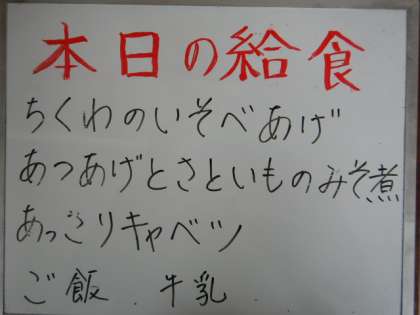 本日の給食
ちくわのいそべあげ
あつあげとさといものみそ煮
あっさりキャベツ
ご飯.牛乳.